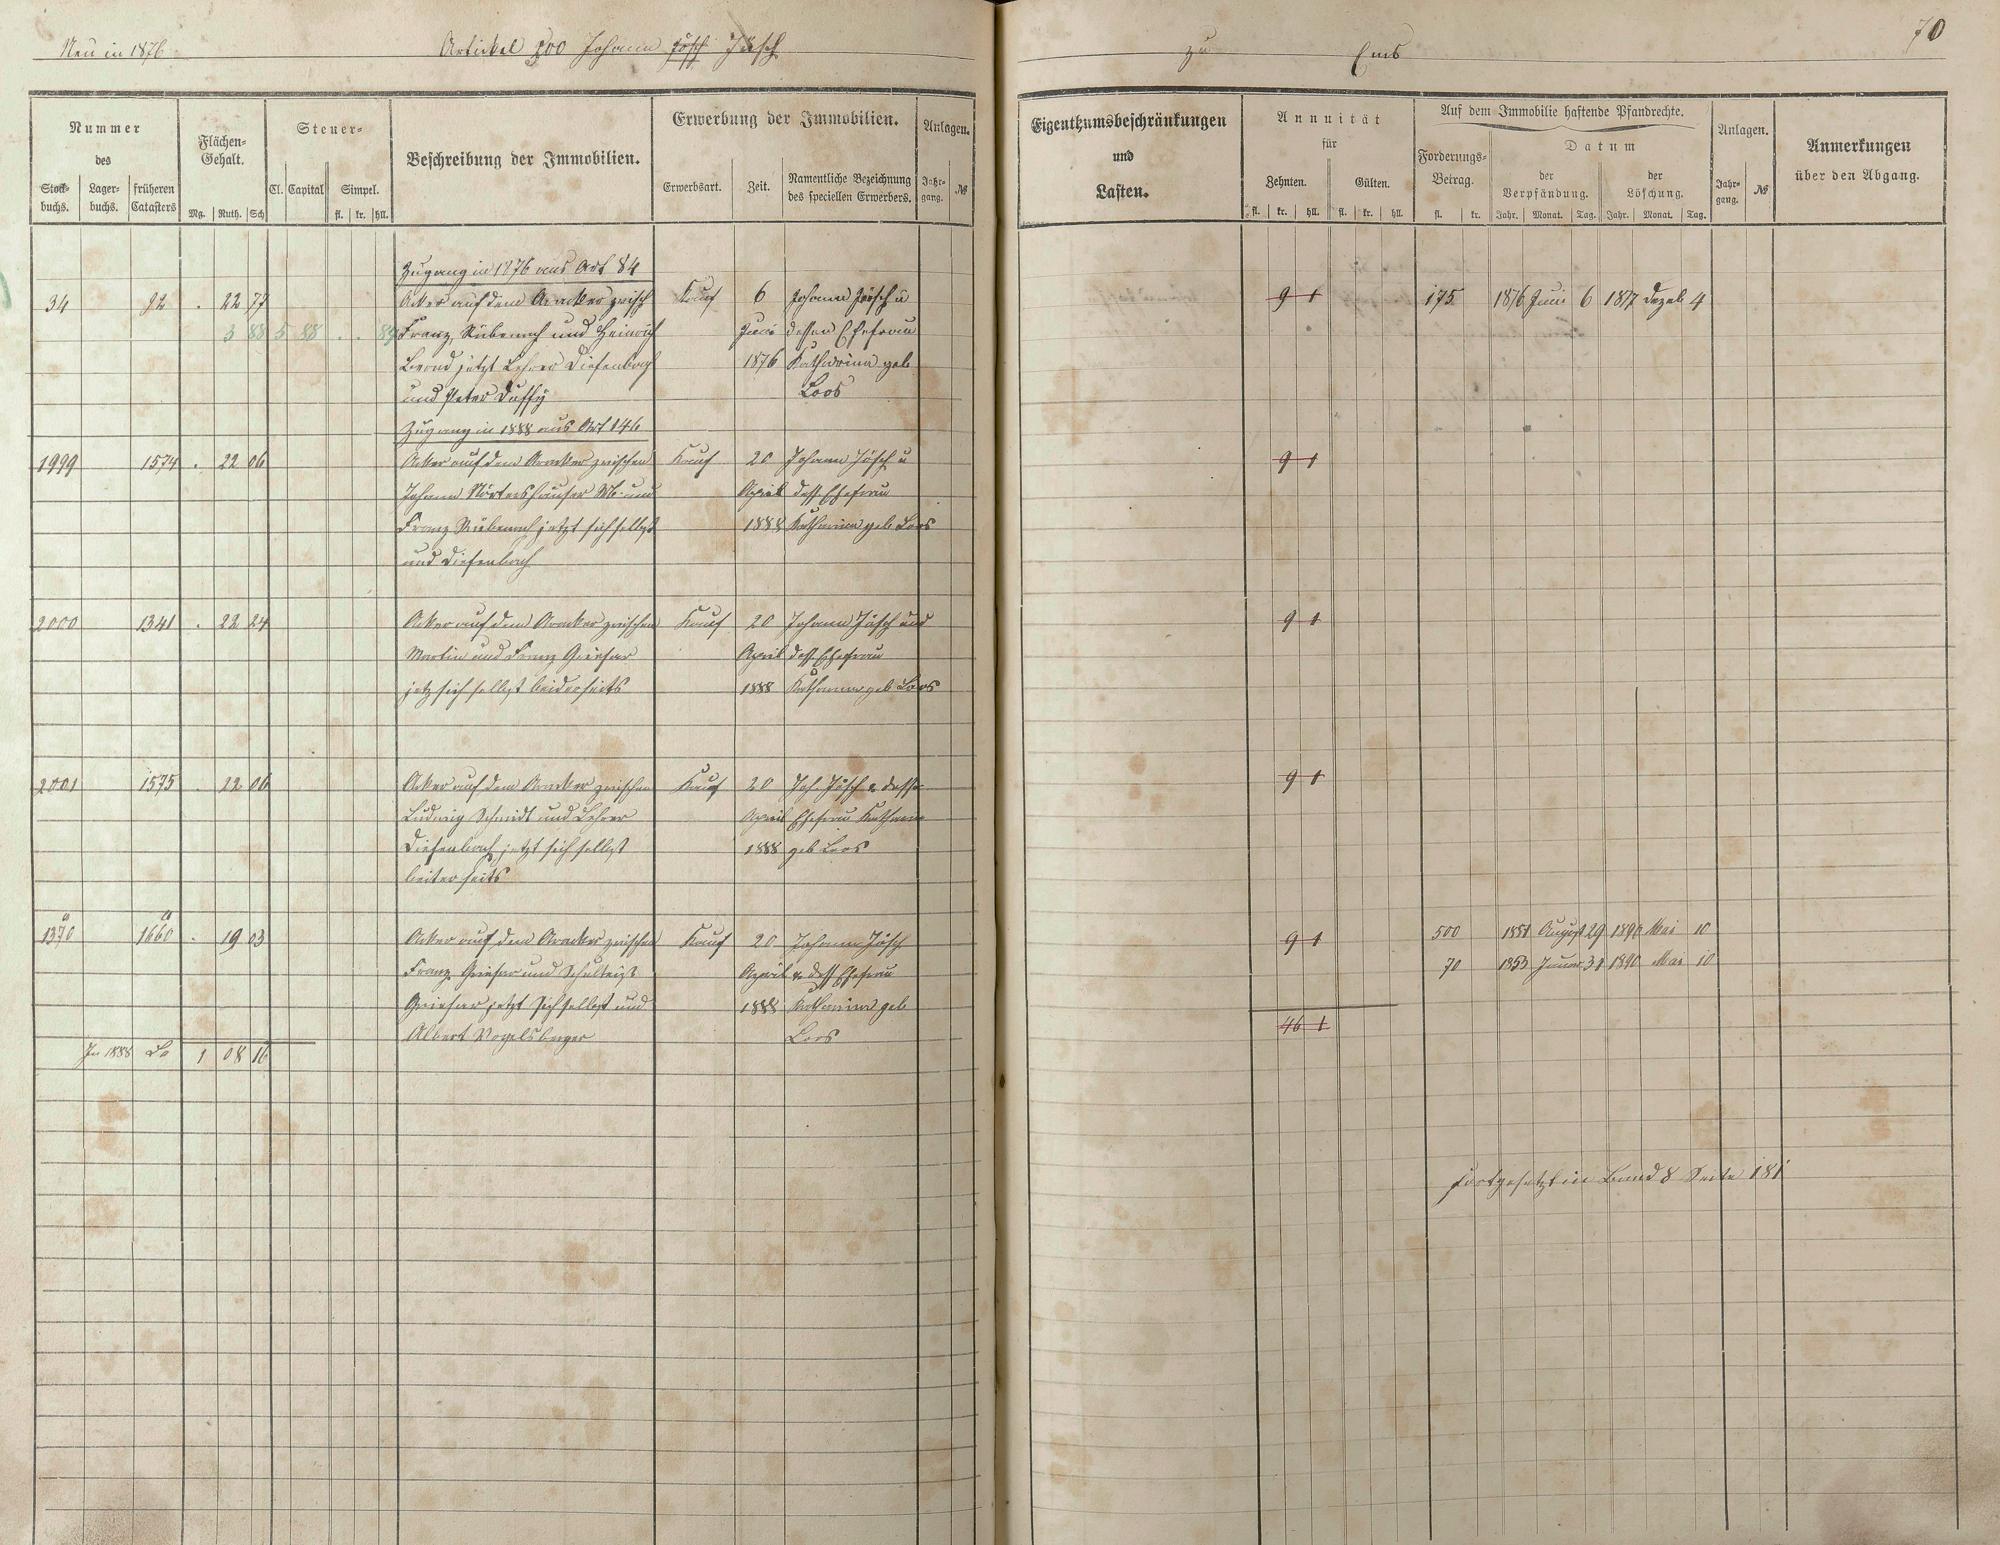 Neu in 1876
Artickel 200 Johann Jösch Jösch
zu Ems
70
Nummer
des
Stock-
buchs.
Lager-
buchs.
früheren
Catasters
Flächen-
Gehalt.
Mg. Ruth. Sch
Steuer-
Cl. Capital Simpel.
fl. kr. hll.
Beschreibung der Immobilien.
Erwerbung der Immobilien.
Erwerbsart. Zeit.
Namentliche Bezeichnung
des speciellen Erwerbers.
Anlagen.
Jahr-
gang.
№
Eigenthumsbeschränkungen
und
Lasten.
Annuität
für
Zehnten. Gülten.
fl. kr. hll. fl. kr. hll.
Auf dem Immobilie haftende Pfandrechte.
Forderungs-
Betrag.
fl. kr.
Datum
der
Verpfändung.
Jahr. Monat. Tag.
der
Löschung.
Jahr. Monat. Tag.
Anlagen.
Jahr-
gang.
№
Anmerkungen
über den Abgang.
Zugang in 1876 aus Art 84
34 92 . 22 77 Acker auf dem Aracker zwisch Kauf 6 Johann Jösch u 9 1 175 1876 Juni 6 1877 Dezeb 4
3 88 5 88 . . 89 Franz Rübenach und Heinrich Juni dessen Ehefrau
Brand jetzt Lehrer Diefenbach 1876 Katharina geb
und Peter Duffy Loos
Zugang in 1888 aus Art 146
1999 1574 . 22 06 Acker auf dem Aracker zwischen Kauf 20 Johann Jösch u 9 1
Johann Nörtershäuser und April dess Ehefrau
Franz Rübenach jetzt sich selbst 1888 Katharina geb Loos
und Diefenbach
2000 1341 . 22 24 Acker auf dem Aracker zwischen Kauf 20 Johann Jösch und 9 1
Martin und Franz Griesar April dess Ehefrau
jetz sich selbst beiderseits 1888 Katharina geb Loos
2001 1575 . 22 06 Acker auf dem Aracker zwischen Kauf 20 Joh. Jösch & dessen 9 1
Ludwig Schmidt und Lehrer April Ehefrau Katharina
Diefenbach jetzt sich selbst 1888 geb Loos
beiterseits
1370 a 1660 a . 19 03 Acker auf dem Aracker zwischen Kauf 20 Johann Jösch 9 1 500 1851 August 29 1890 Mai 10
Franz Griesar und Schulteist April & dess Ehefrau 70 1853 Januar 31 1890 Mai 10
Griesar jetzt sich selbst und 1888 Katharina geb
Albert Vogelsberger Loos 46 1
In 1888 La 1 08 16
fortgesetzt in Band 8 Seite 181